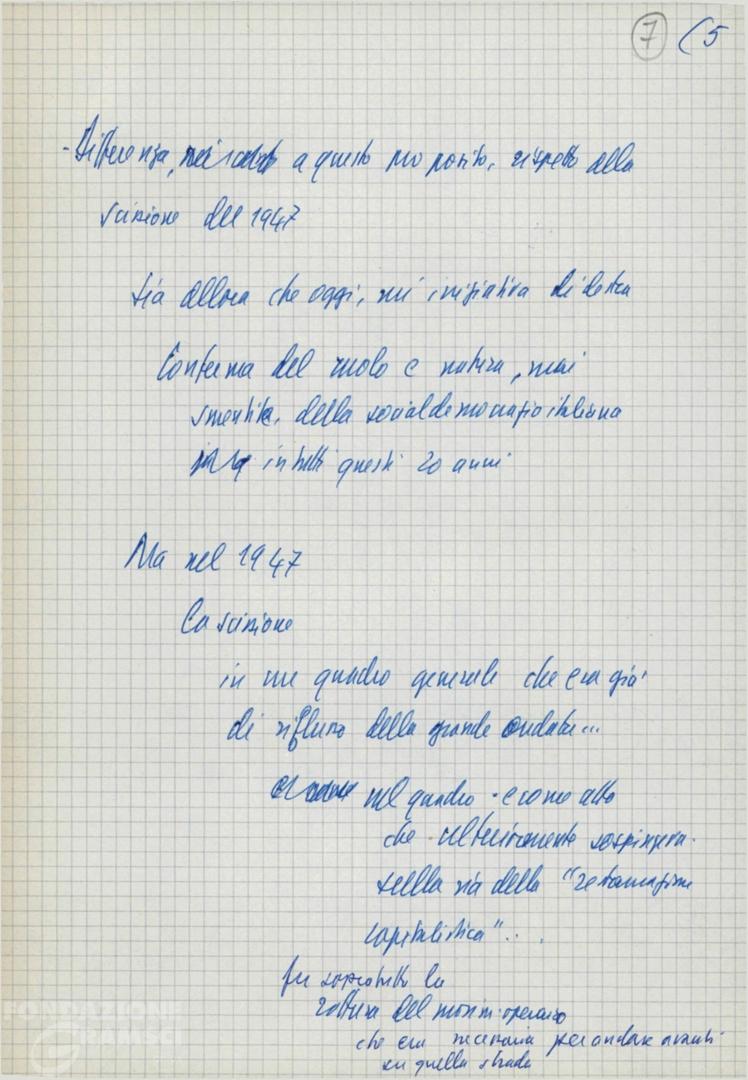 7 (5
- Differenza, a questo proposito, rispetto alla
scissione del 1947
sia allora che oggi, un'iniziativa di destra
Conferma del ruolo e natura, mai
smentita, della socialdemocrazia italiana
in tutti questi 20 anni
Ma nel 1947
la scissione
in un quadro generale che era già
di riflusso della grande ondata...
nel quadro - e come atto
che ulteriormente sospingeva -
sulla via della "restaurazione
capitalistica"...
fu soprattutto la
rottura del movim. operaio
che era necessaria per andare avanti
su quella strada
FONDAZIONE
GRAMSCI